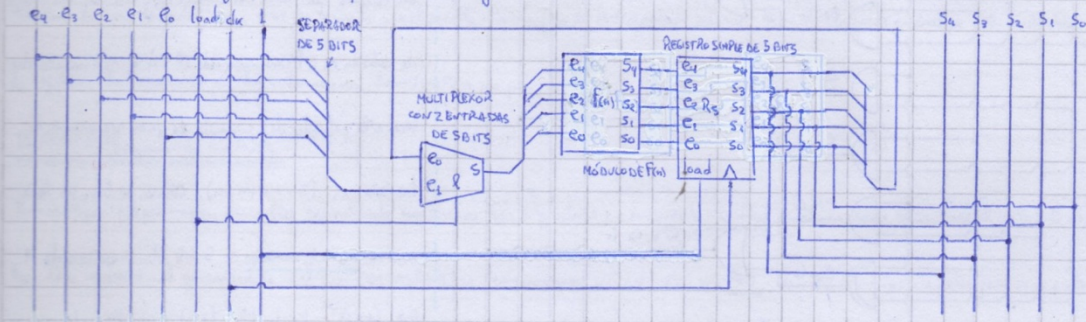 e4 e3 e2 e1 e0 load clk 1
SEPARADOR
DE 5 BITS
MULTIPLEXOR
CON 2 ENTRADAS
DE 5 BITS
e0
e1
S
l
e4 S4
e3 S3
e2 f(n) S2
e1 S1
e0 S0
MÓDULO DE F(n)
REGISTRO SIMPLE DE 5 BITS
e4 S4
e3 S3
e2 R5 S2
e1 S1
e0 S0
load
S4 S3 S2 S1 S0